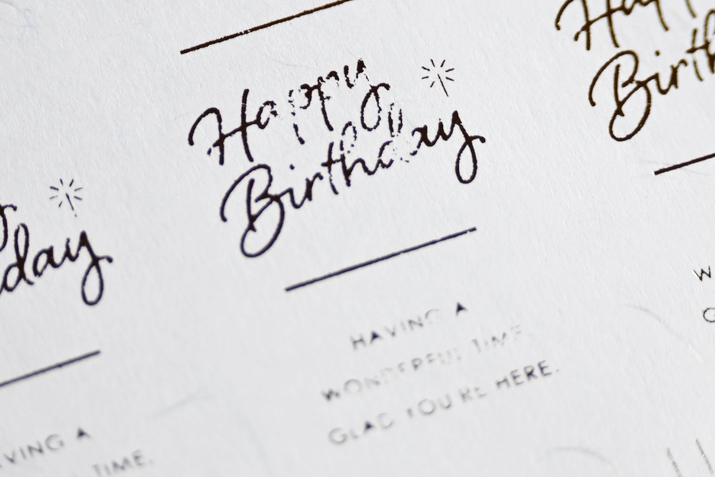 Happy
Birthday
HAVING A
WONDERFUL TIME
GLAD YOU'RE HERE.
day
VING A
TIME.
Happy
Birth
W